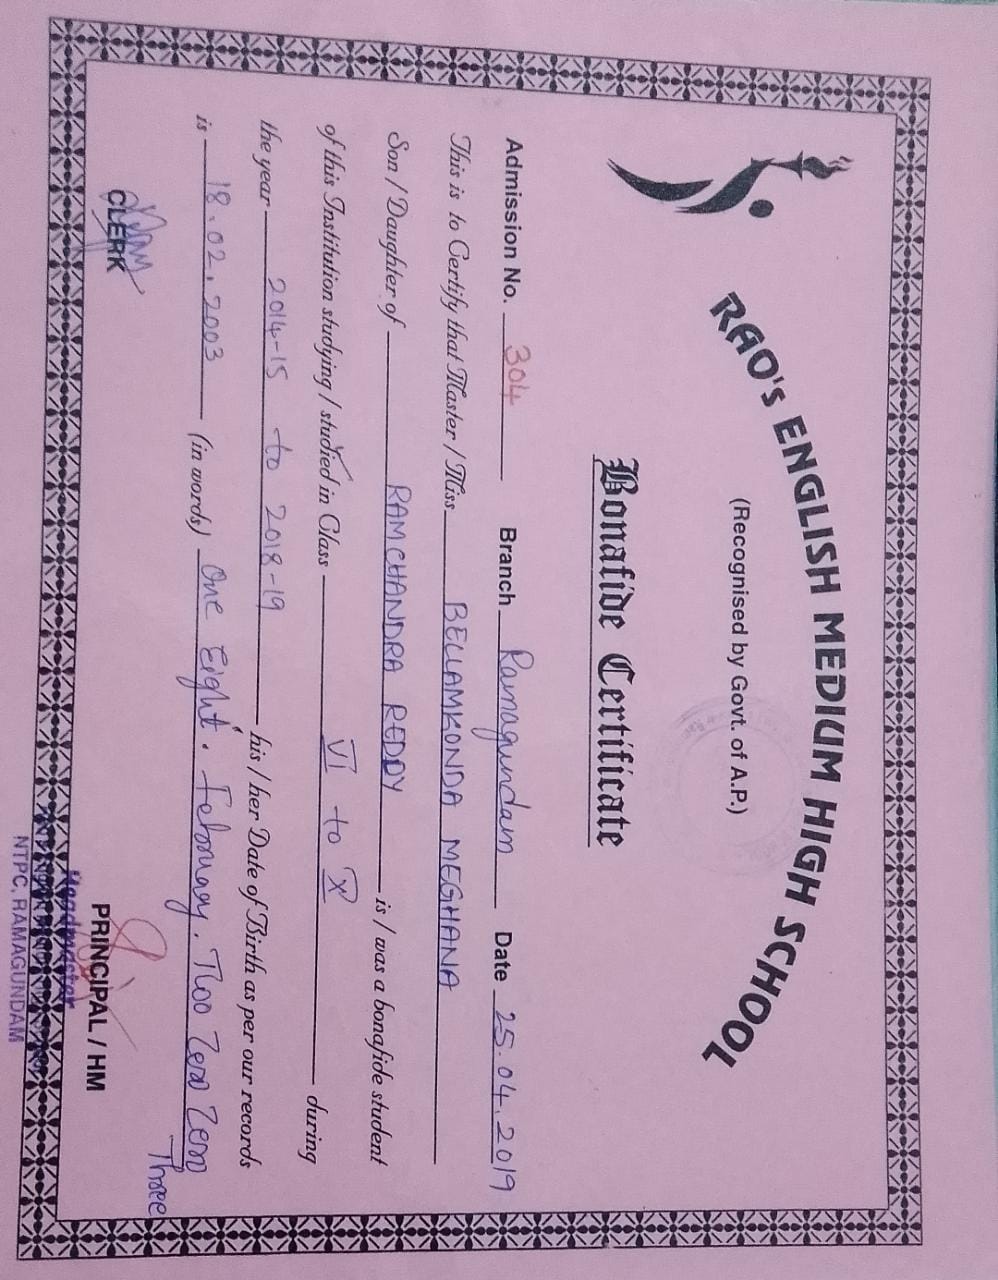 RAO's ENGLISH MEDIUM HIGH SCHOOL
(Recognised by Govt. of A.P.)
Bonafide Certificate
Admission No. 304 Branch Ramagundam Date 25.04.2019
This is to Certify that Master / Miss BELLAMKONDA MEGHANA
Son / Daughter of RAMCHANDRA REDDY is / was a bonafide student
of this Institution studying / studied in Class VI to X during
the year 2014-15 to 2018-19 his / her Date of Birth as per our records
is 18.02.2003 (in words) One Eight. February. Two Zero Zero
Three
CLERK
PRINCIPAL / HM
Headmaster
NTPC, RAMAGUNDAM